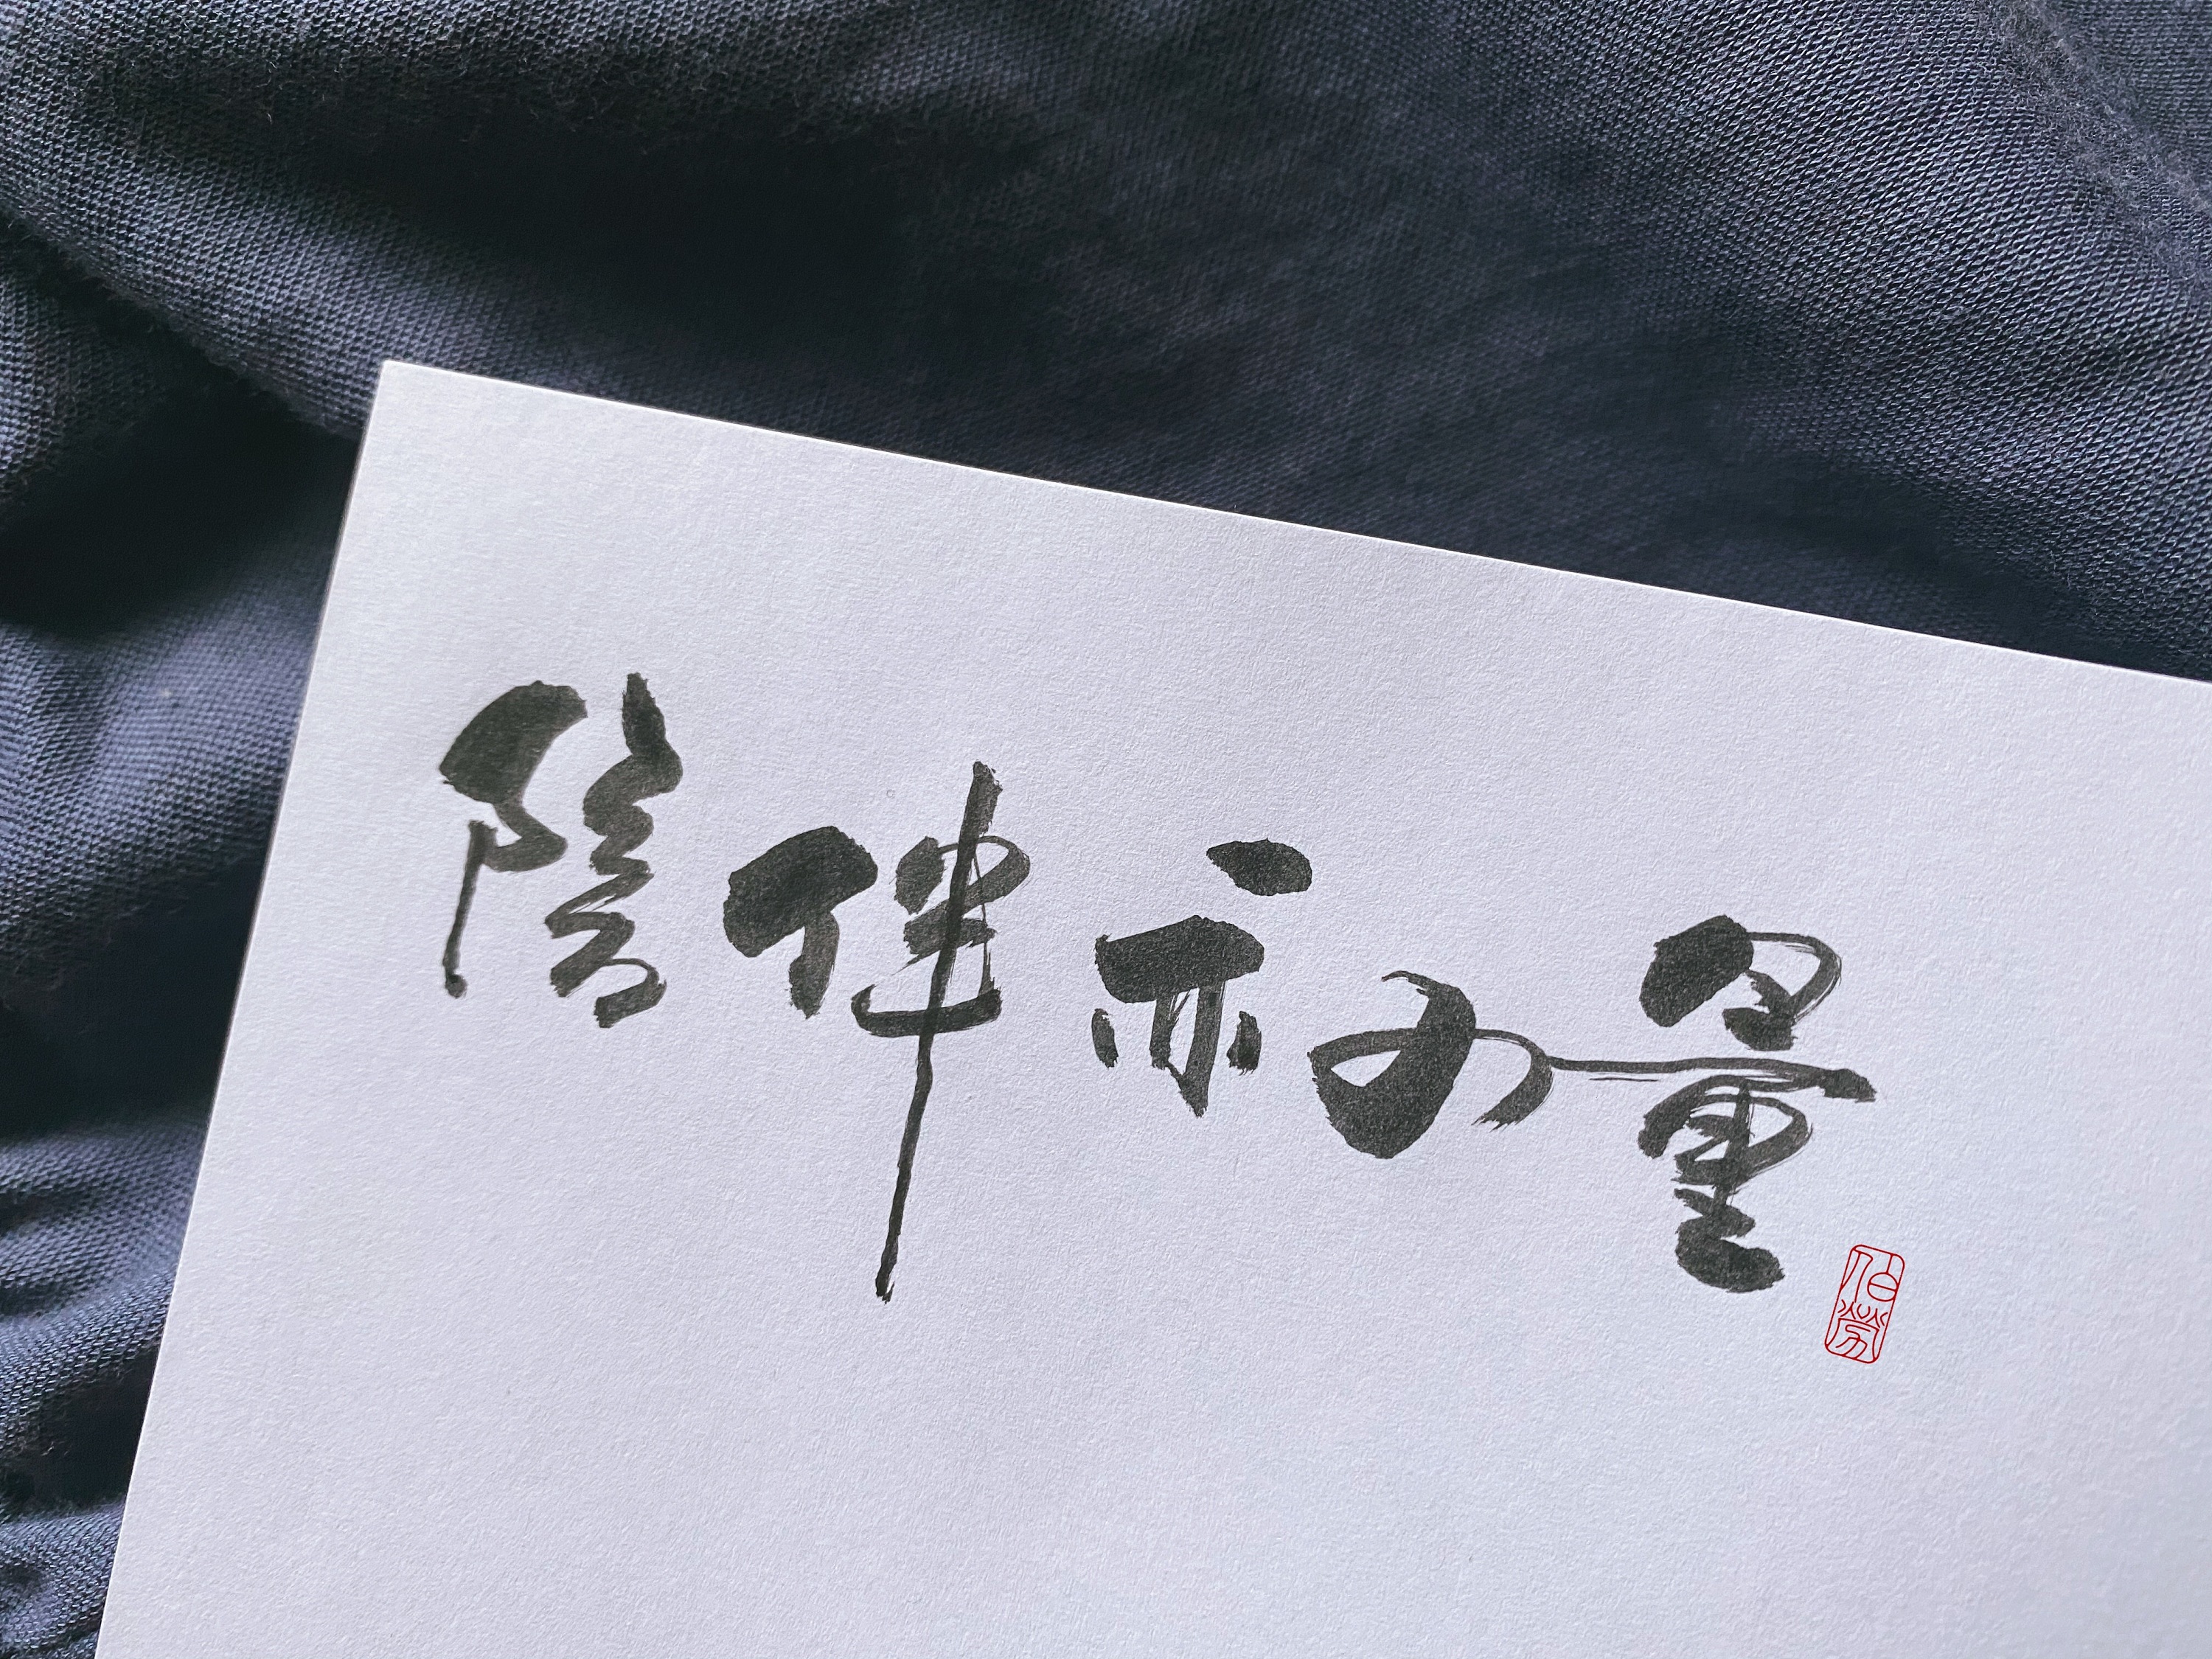 陪伴亦力量
伯勞